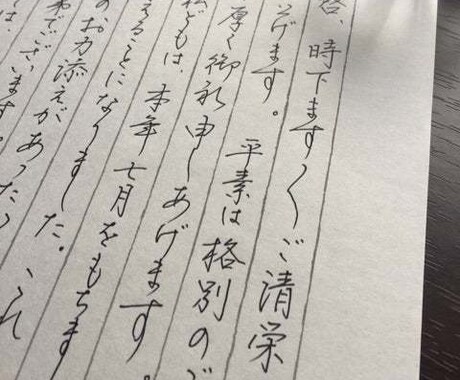 啓、時下ます〱ご清栄
げます。　平素は格別のご
厚く御礼申しあげます。
私どもは、本年七月をもちま
えることになりました。これ
のお力添えがあった
でございます。
は、